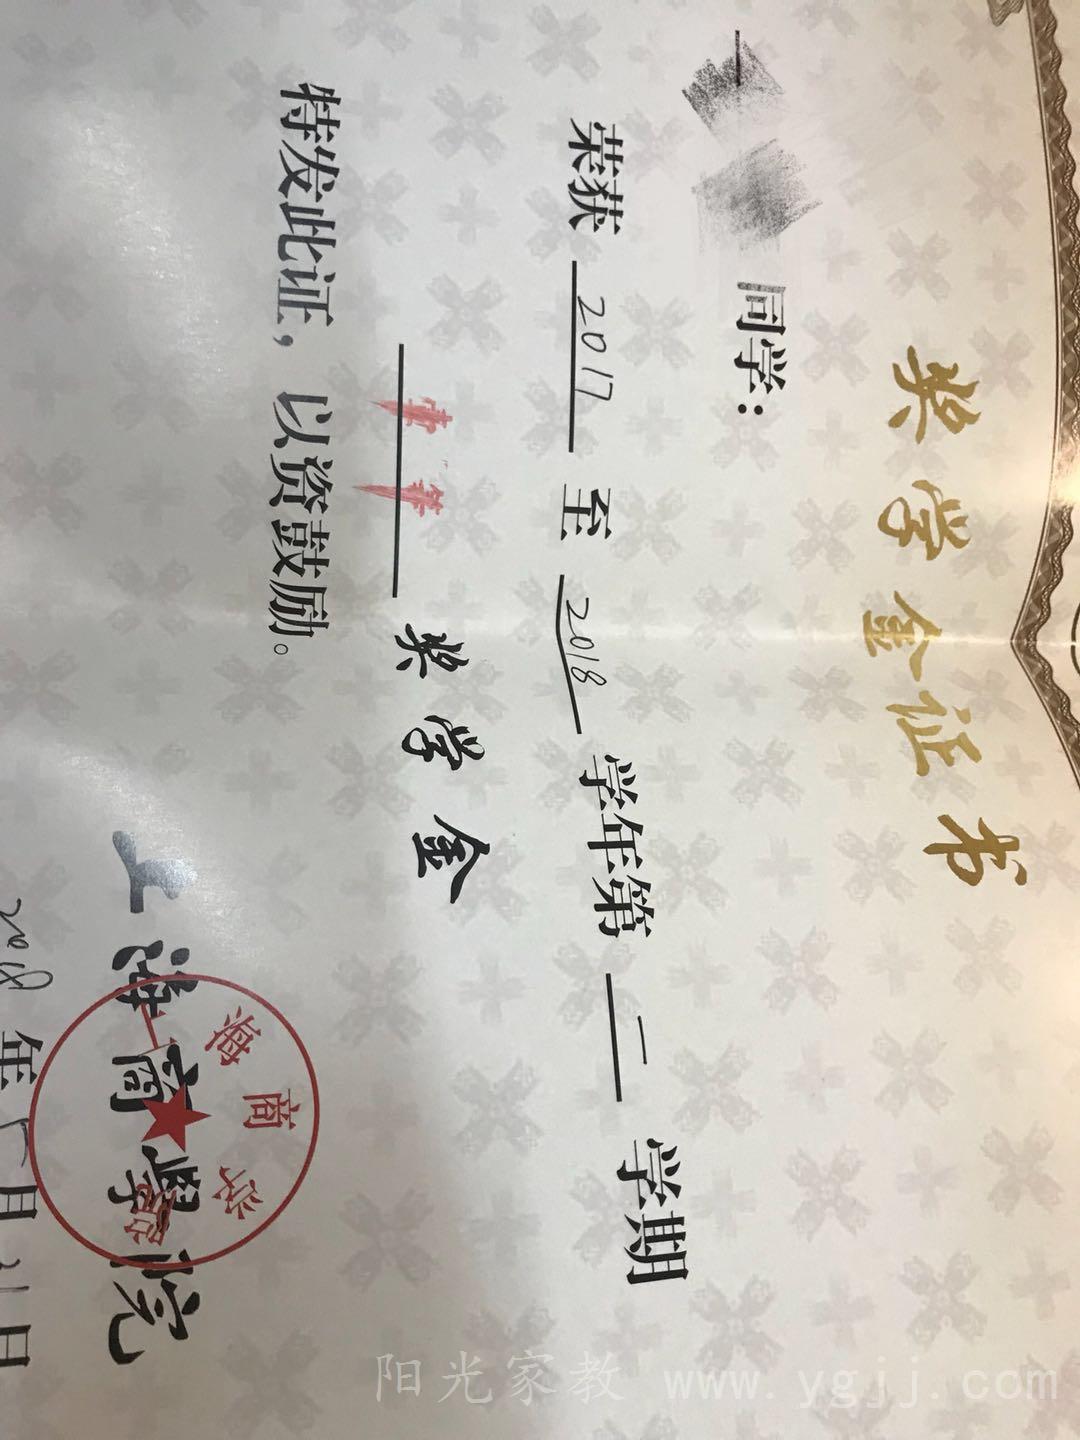 奖学金证书
同学：
荣获 2017 至 2018 学年第 二 学期
奖学金
特发此证，以资鼓励。
上海商學院
海商学院
2018年 月21日
阳光家教 www.ygjj.com